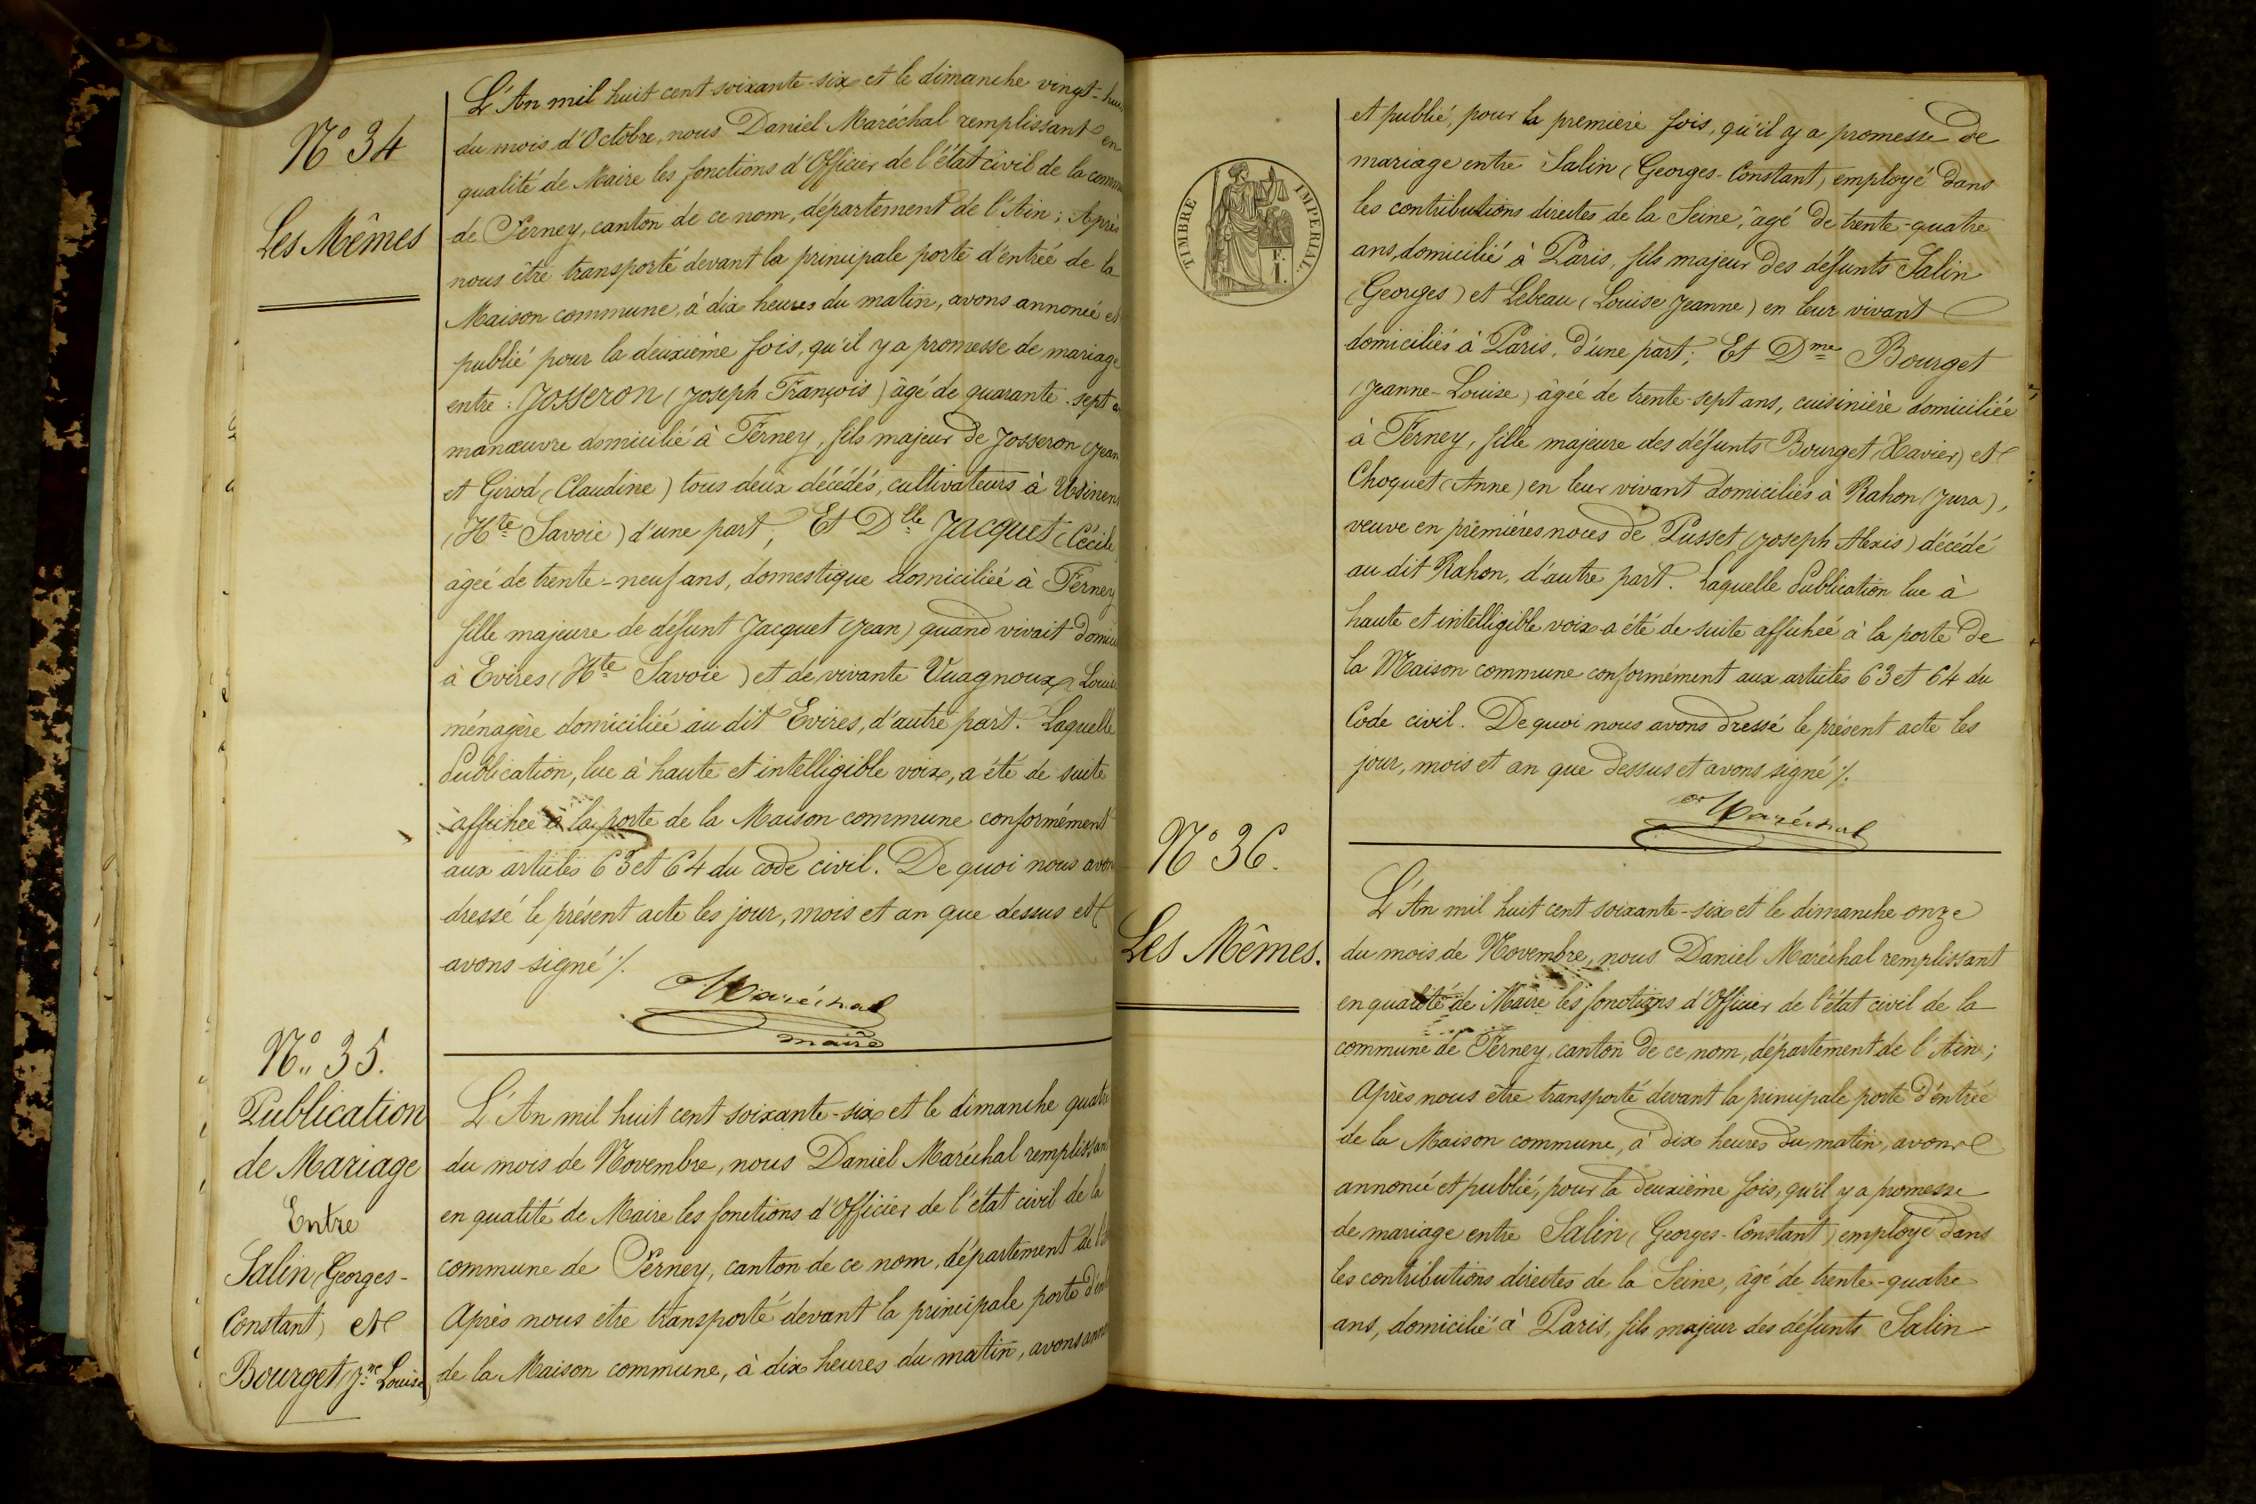 N° 34
Les Mêmes
L'An mil huit cent soixante-six et le dimanche vingt-hui
du mois d'Octobre, nous Daniel Maréchal remplissant en
qualité de Maire les fonctions d'Officier de l'état civil de la comm
de Ferney, canton de ce nom, département de l'Ain ; Après
nous être transporté devant la principale porte d'entrée de la
Maison commune, à dix heures du matin, avons annoncé et
publié pour la deuxième fois, qu'il y a promesse de mariage
entre : Josseron (Joseph François) âgé de quarante-sept a
manœuvre domicilié à Ferney, fils majeur de Josseron (Jean
et Girod (Claudine) tous deux décédés, cultivateurs à Usinens
(Hte Savoie) d'une part, Et Dlle Jacquet (Cécile
âgée de trente-neuf ans, domestique domiciliée à Ferney
fille majeure de défunt Jacquet (Jean) quand vivait domici
à Evires (Hte Savoie) et de vivante Vuagnoux (Louise
ménagère domiciliée au dit Evires, d'autre part. Laquelle
Publication, lue à haute et intelligible voix, a été de suite
affichée à la porte de la Maison commune conformément
aux articles 63 et 64 du code civil. De quoi nous avon
dressé le présent acte les jour, mois et an que dessus et
avons signé ./.
Maréchal
maire
N° 35.
Publication
de Mariage
Entre
Salin (Georges-
Constant) et
Bourget (Jne Louise
L'An mil huit cent soixante-six et le dimanche quatre
du mois de Novembre, nous Daniel Maréchal remplissan
en qualité de Maire les fonctions d'Officier de l'état civil de la
commune de Ferney, canton de ce nom, département de l'A
Après nous être transporté devant la principale porte d'en
de la Maison commune, à dix heures du matin, avons anno
TIMBRE IMPERIAL.
et publié, pour la première fois, qu'il y a promesse de
mariage entre Salin (Georges-Constant) employé dans
les contributions directes de la Seine, âgé de trente-quatre
ans, domicilié à Paris, fils majeur des défunts Salin
(Georges) et Lebeau (Louise Jeanne) en leur vivant
domiciliés à Paris, d'une part ; Et Dme Bourget
(Jeanne-Louise) âgée de trente-sept ans, cuisinière domiciliée
à Ferney, fille majeure des défunts Bourget (Xavier) et
Choquet (Anne) en leur vivant domiciliés à Rahon (Jura),
veuve en premières noces de Pusset (Joseph Alexis) décédé
au dit Rahon, d'autre part. Laquelle Publication lue à
haute et intelligible voix a été de suite affichée à la porte de
la Maison commune conformément aux articles 63 et 64 du
Code civil. De quoi nous avons dressé le présent acte les
jour, mois et an que dessus et avons signé ./.
Maréchal
N° 36.
Les Mêmes.
L'An mil huit cent soixante-six et le dimanche onze
du mois de Novembre, nous Daniel Maréchal remplissant
en qualité de Maire les fonctions d'Officier de l'état civil de la
commune de Ferney, canton de ce nom, département de l'Ain ;
Après nous être transporté devant la principale porte d'entrée
de la Maison commune, à dix heures du matin, avons
annoncé et publié, pour la deuxième fois, qu'il y a promesse
de mariage entre Salin (Georges-Constant) employé dans
les contributions directes de la Seine, âgé de trente-quatre
ans, domicilié à Paris, fils majeur des défunts Salin